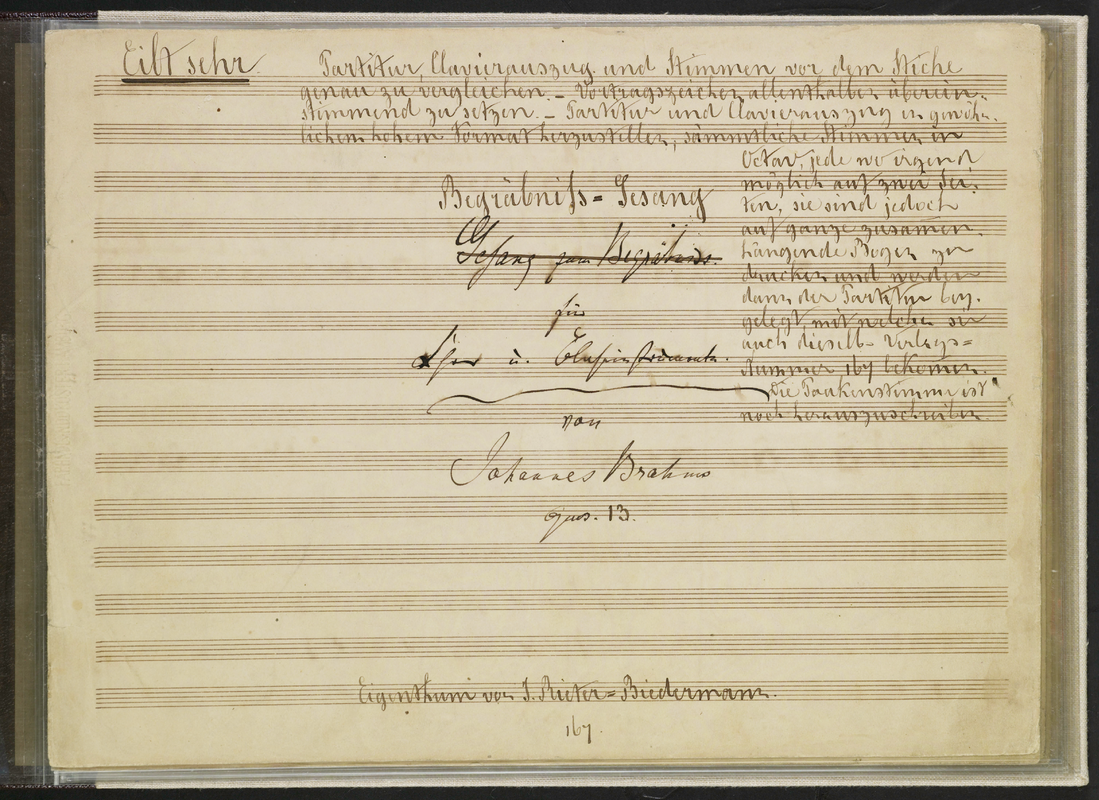 Eilt sehr.
Partitur, Clavierauszug und Stimmen vor dem Stiche
genau zu vergleichen. – Vortragszeichen allenthalben überein-
stimmend zu setzen. – Partitur und Clavierauszug in gewöhn-
lichem hohem Format herzustellen, sämmtliche Stimmen in
Octav, jede wo irgend
möglich auf zwei Sei-
ten; sie sind jedoch
auf ganze zusamen-
hängende Bogen zu
drucken und werden
dann der Partitur bey-
gelegt, mit welcher sie
auch dieselbe Verlags=
Nummer 167 bekomen.
Die Paukenstimme ist
noch herauszuschreiben.
Begräbniss=Gesang
Gesang zum Begräbniss.
für
Chor u. Blasinstrumente.
von
Johannes Brahms
opus. 13.
Eigenthum von J. Rieter=Biedermann.
167.